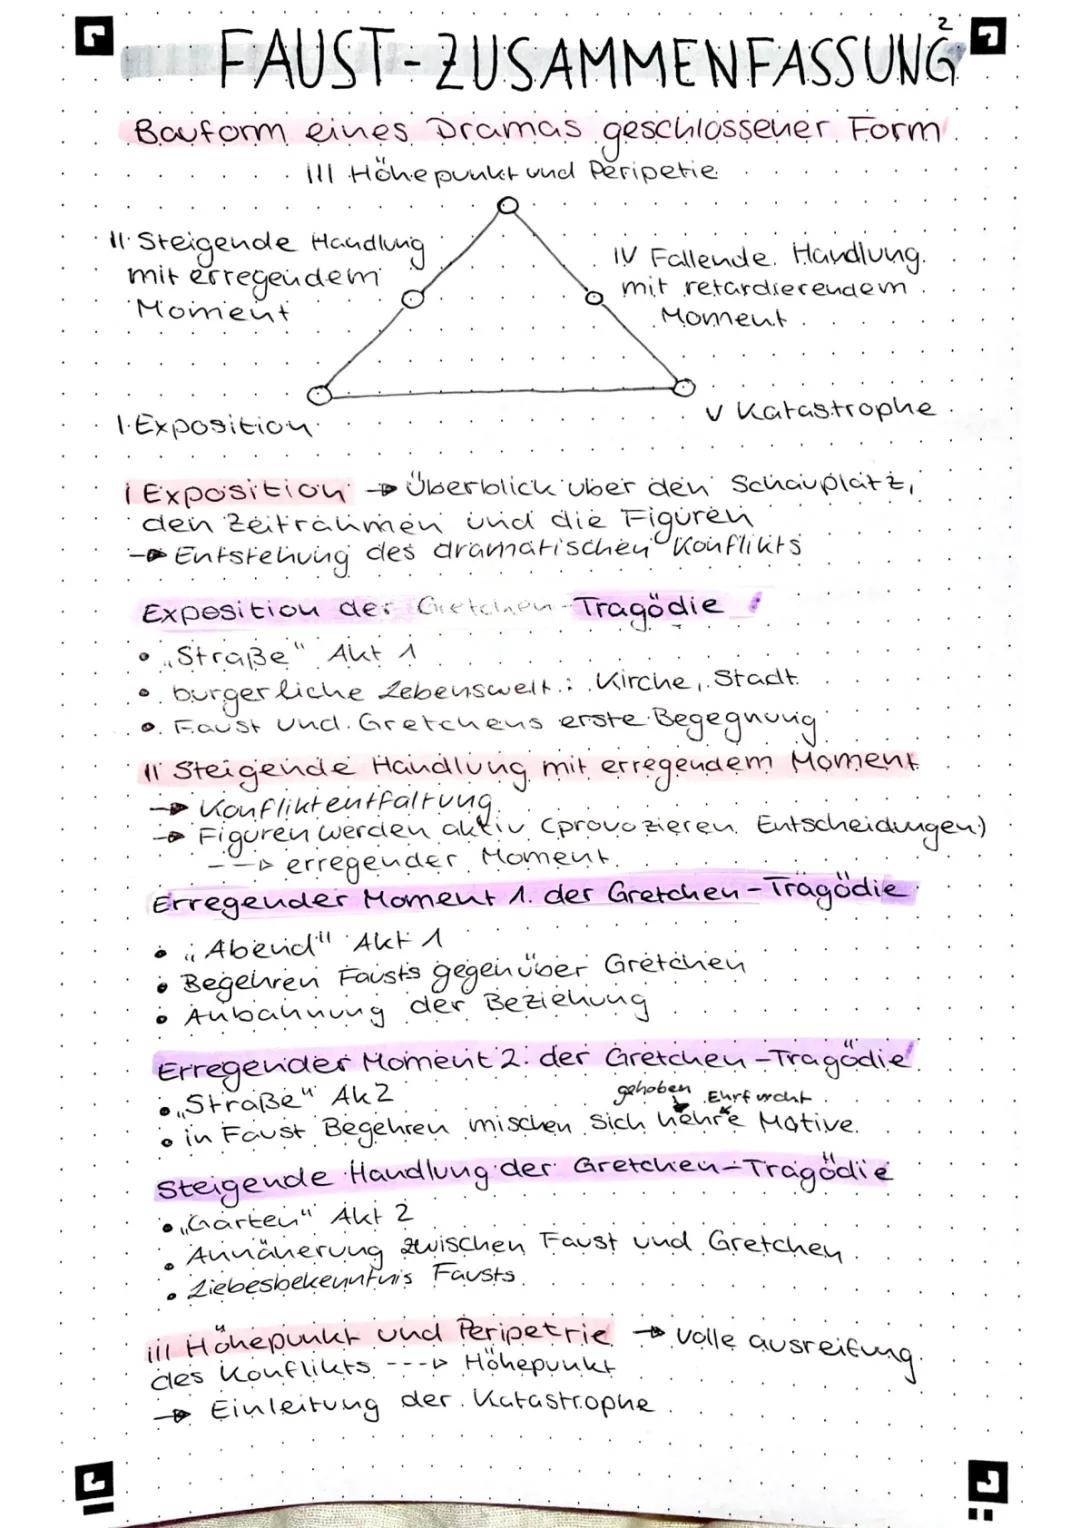 FAUST-ZUSAMMENFASSUNG 2
Bauform eines Dramas geschlossener Form
III Höhepunkt und Peripetie
II Steigende Handlung
mit erregendem
Moment
IV Fallende Handlung
mit retardierendem
Moment
I Exposition
V Katastrophe
I Exposition → Überblick über den Schauplatz,
den Zeitrahmen und die Figuren
→ Entstehung des dramatischen Konflikts
Exposition der Gretchen-Tragödie :
• „Straße" Akt 1
• bürgerliche Lebenswelt: Kirche, Stadt
• Faust und Gretchens erste Begegnung
II Steigende Handlung mit erregendem Moment
→ Konfliktentfaltung
→ Figuren werden aktiv (provozieren Entscheidungen)
---> erregender Moment
Erregender Moment 1. der Gretchen-Tragödie
• „Abend" Akt 1
• Begehren Fausts gegenüber Gretchen
• Anbahnung der Beziehung
Erregender Moment 2. der Gretchen-Tragödie
• „Straße" Ak 2
gehoben Ehrfurcht
• in Faust Begehren mischen sich hehre Motive
Steigende Handlung der Gretchen-Tragödie
• „Garten" Akt 2
• Annäherung zwischen Faust und Gretchen
• Liebesbekenntnis Fausts
III Höhepunkt und Peripetrie → volle ausreifung
des Konflikts ---> Höhepunkt
→ Einleitung der Katastrophe